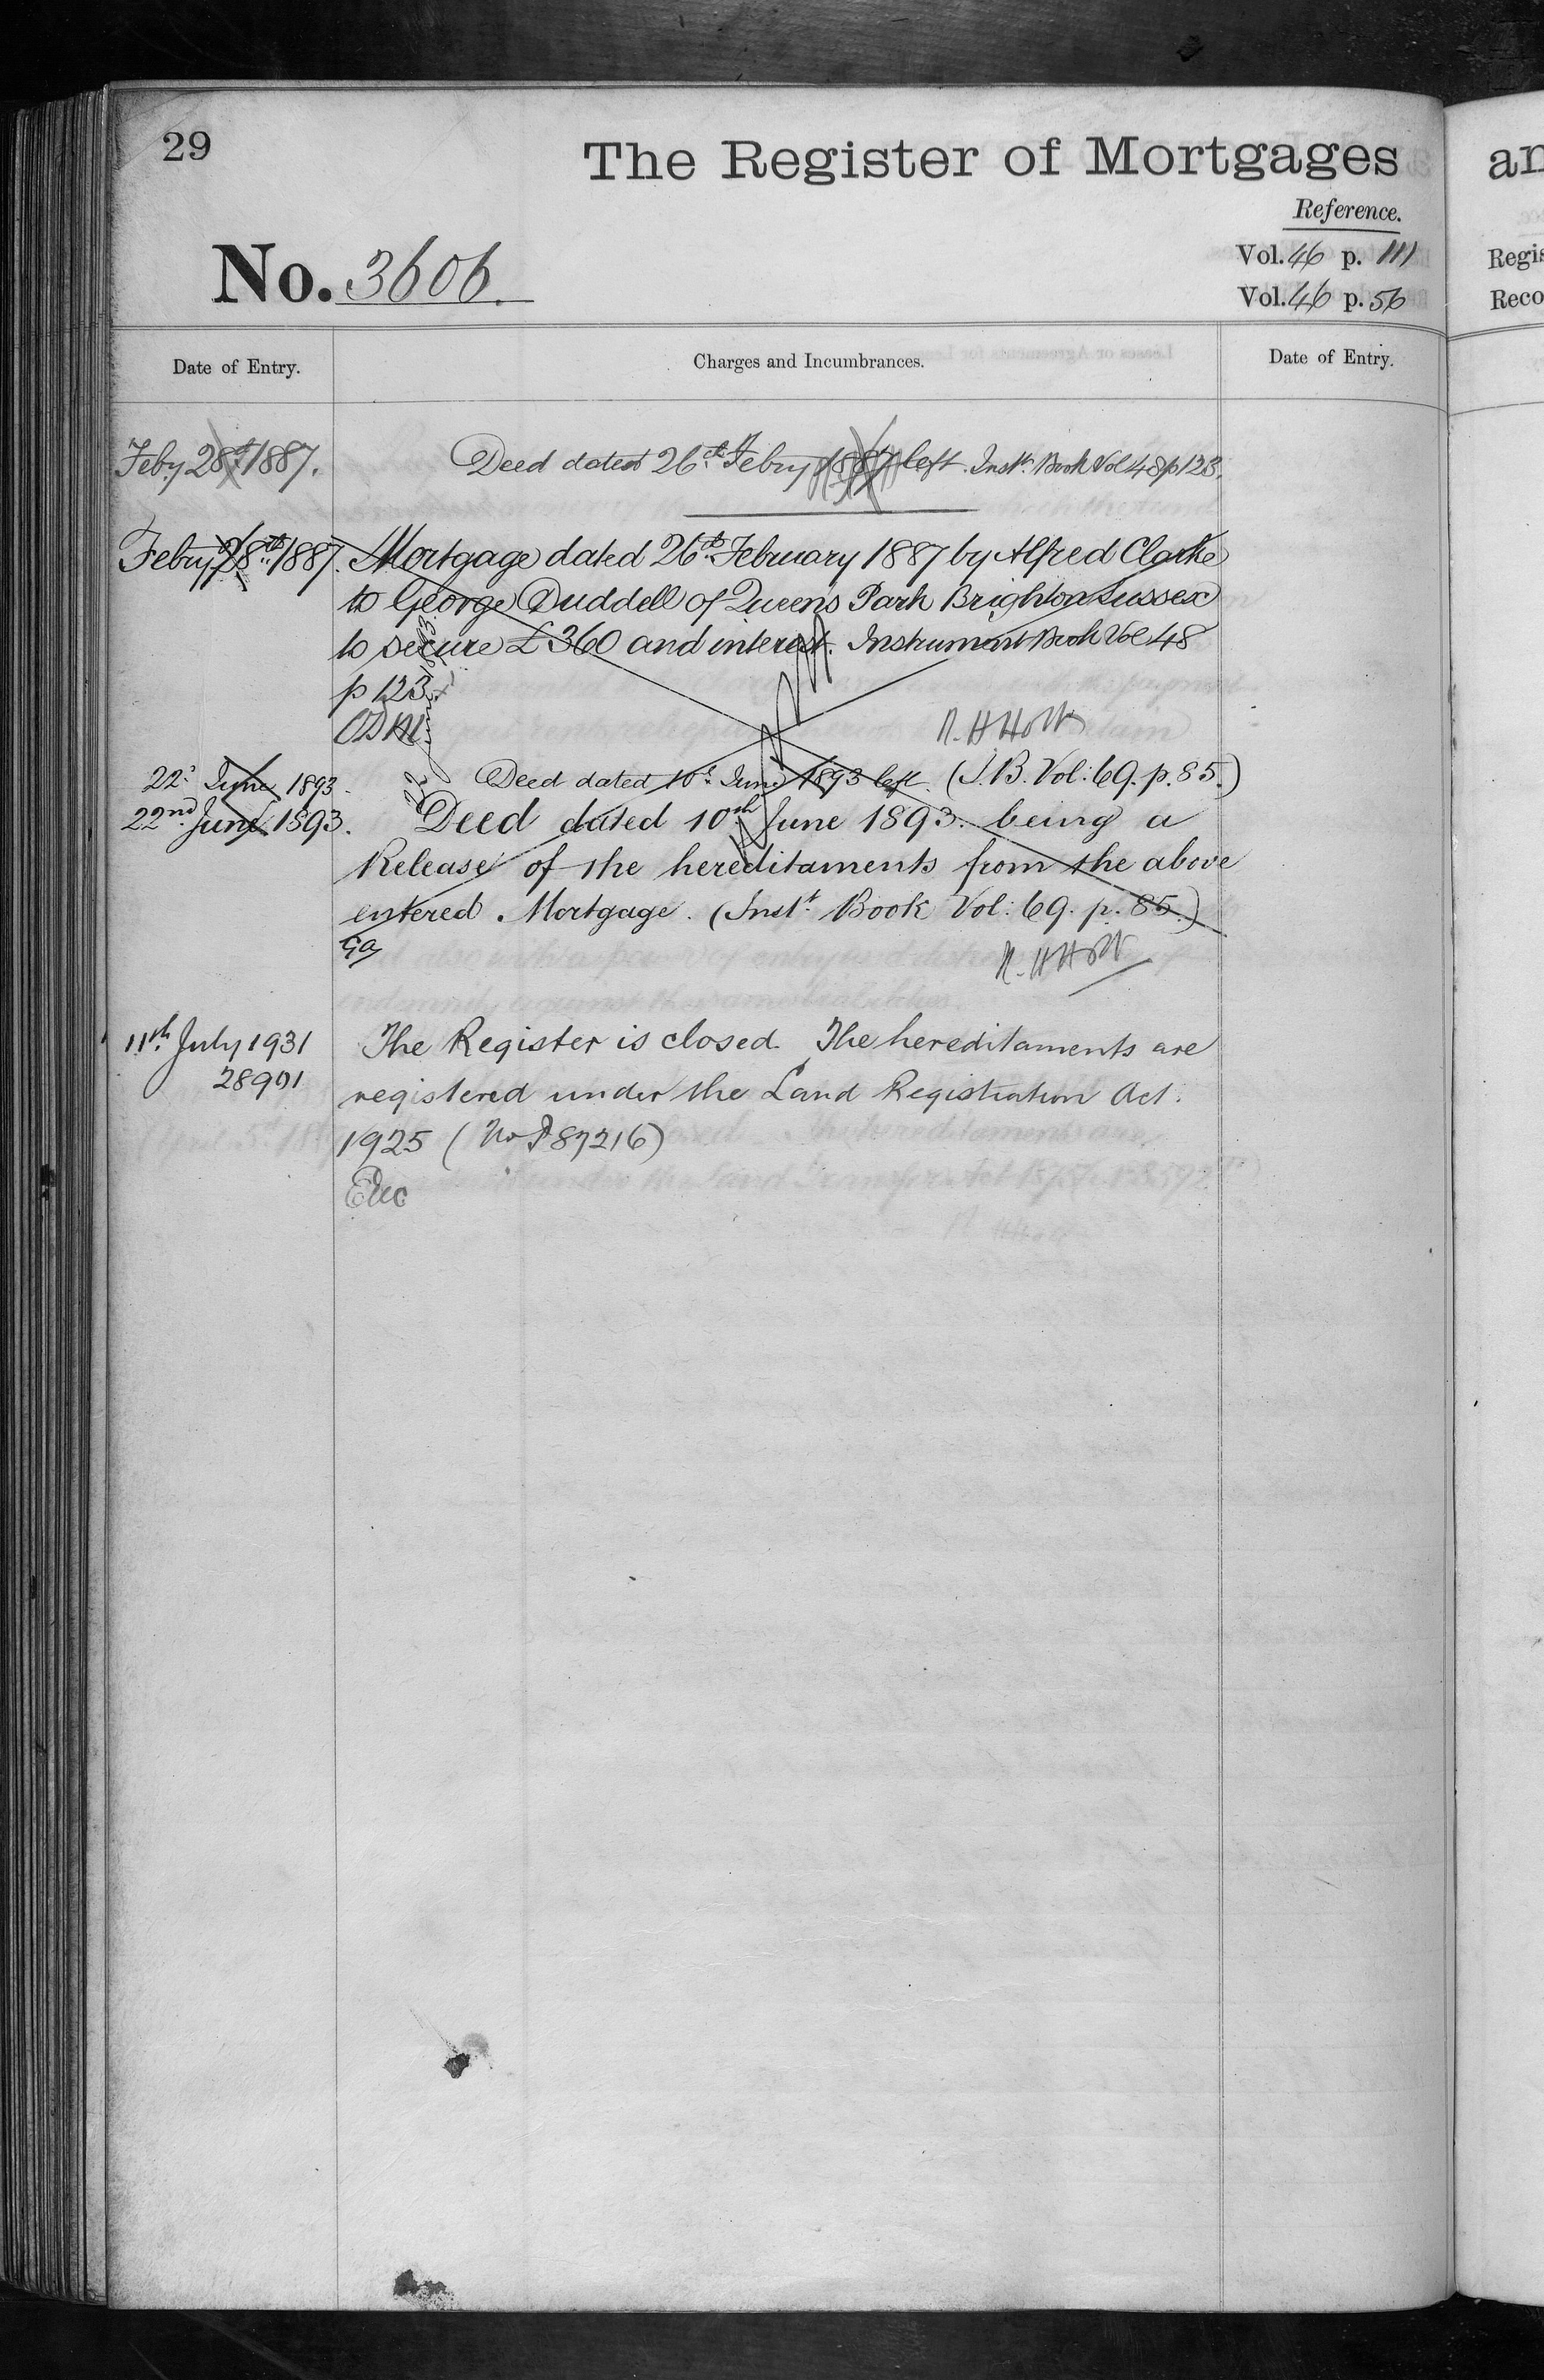 29
The Register of Mortgages
Reference.
No. 3606.
Vol. 46 p. 111
Vol. 46 p. 56
Date of Entry.
Charges and Incumbrances.
Date of Entry.
Feby. 28th 1887.
Deed dated 26th Febry 1887 left. Instt. Book Vol 48 p 123.
Febry 28th 1887.
Mortgage dated 26th February 1887 by Alfred Clarke
to George Duddell of Queen's Park Brighton Sussex
to secure £360 and interest. Instrument Book Vol 48
p 123
R. H Holt
22d June 1893.
Deed dated 10th June 1893 left. (I.B. Vol: 69. p. 85.)
22nd June 1893.
Deed dated 10th June 1893. being a
Release of the hereditaments from the above
entered Mortgage. (Instt. Book Vol: 69. p. 85.)
R. H Holt
11th July 1931
The Register is closed. The hereditaments are
28901
registered under the Land Registration Act.
1925 (No P87216)
an
Regis
Reco